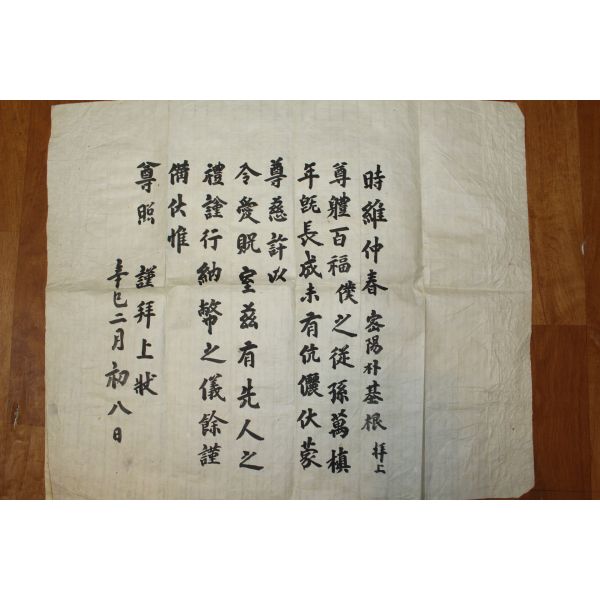 時維仲春 密陽朴基根 拜上
尊體百福僕之從孫萬楨
年旣長成未有伉儷伏蒙
尊慈許以
令愛貺室玆有先人之
禮謹行納幣之儀餘謹
備伏惟
尊照 謹拜上狀
辛巳二月初八日